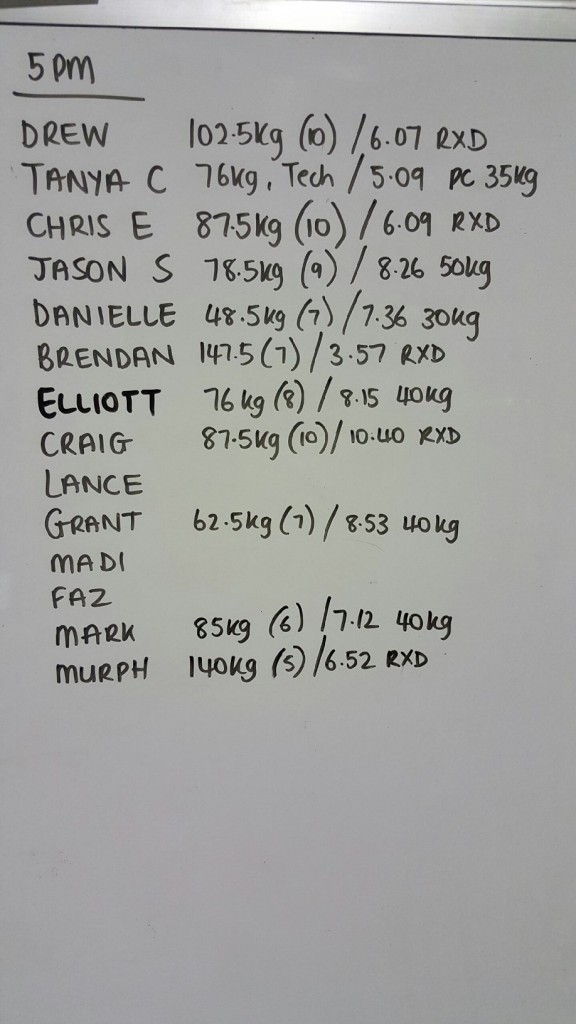 5pm
DREW 102.5kg (10) / 6.07 RXD
TANYA C 76kg, Tech / 5.09 PC 35kg
CHRIS E 87.5kg (10) / 6.09 RXD
JASON S 78.5kg (9) / 8.26 50kg
DANIELLE 48.5kg (7) / 7.36 30kg
BRENDAN 147.5 (7) / 3.57 RXD
ELLIOTT 76kg (8) / 8.15 40kg
CRAIG 87.5kg (10) / 10.40 RXD
LANCE
GRANT 62.5kg (7) / 8.53 40kg
MADI
FAZ
MARK 85kg (6) / 7.12 40kg
MURPH 140kg (5) / 6.52 RXD